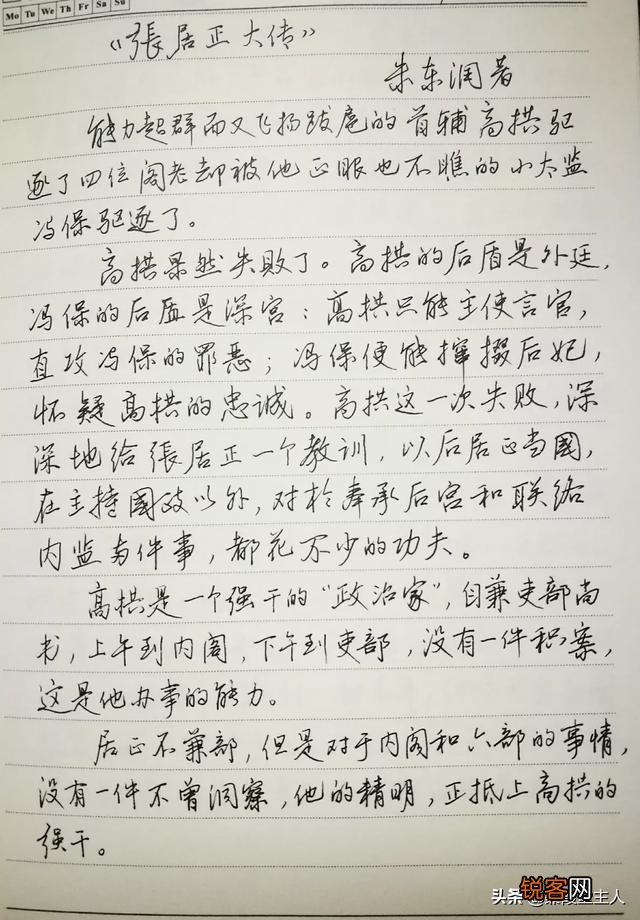 Mo Tu We Th Fr Sa Su
《張居正大传》
朱东润著
能力超群而又飞扬跋扈的首辅高拱驱
逐了四位阁老却被他正眼也不瞧的小太监
冯保驱逐了。
高拱果然失败了。高拱的后盾是外廷，
冯保的后盾是深宫：高拱只能主使言官，
直攻冯保的罪恶；冯保便能撺掇后妃，
怀疑高拱的忠诚。高拱这一次失败，深
深地给張居正一个教训，以后居正当國，
在主持國政以外，对於奉承后宫和联络
内监两件事，都花不少的功夫。
高拱是一个强干的“政治家”，自兼吏部尚
书，上午到内阁，下午到吏部，没有一件积案，
这是他办事的能力。
居正不兼部，但是对于内阁和六部的事情，
没有一件不曾洞察，他的精明，正抵上高拱的
强干。
锐客网
头条 主人